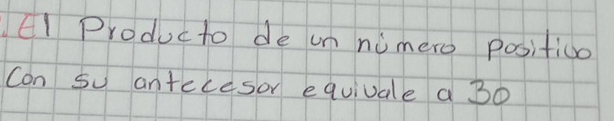 El Producto de un número positivo
Con su antecesor equivale a 30